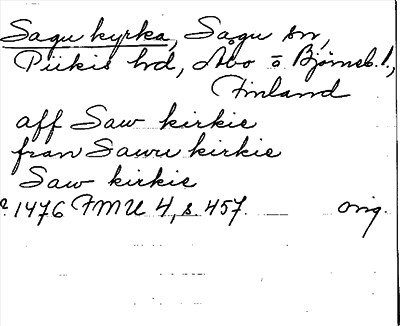 Sagu kyrka, Sagu sn,
Piikis hd, Åbo o Björneb. l.,
Finland
aff Saw kirkie
fran Sawu kirkie
Saw kirkie
1476 FMU 4, s. 457. orig.